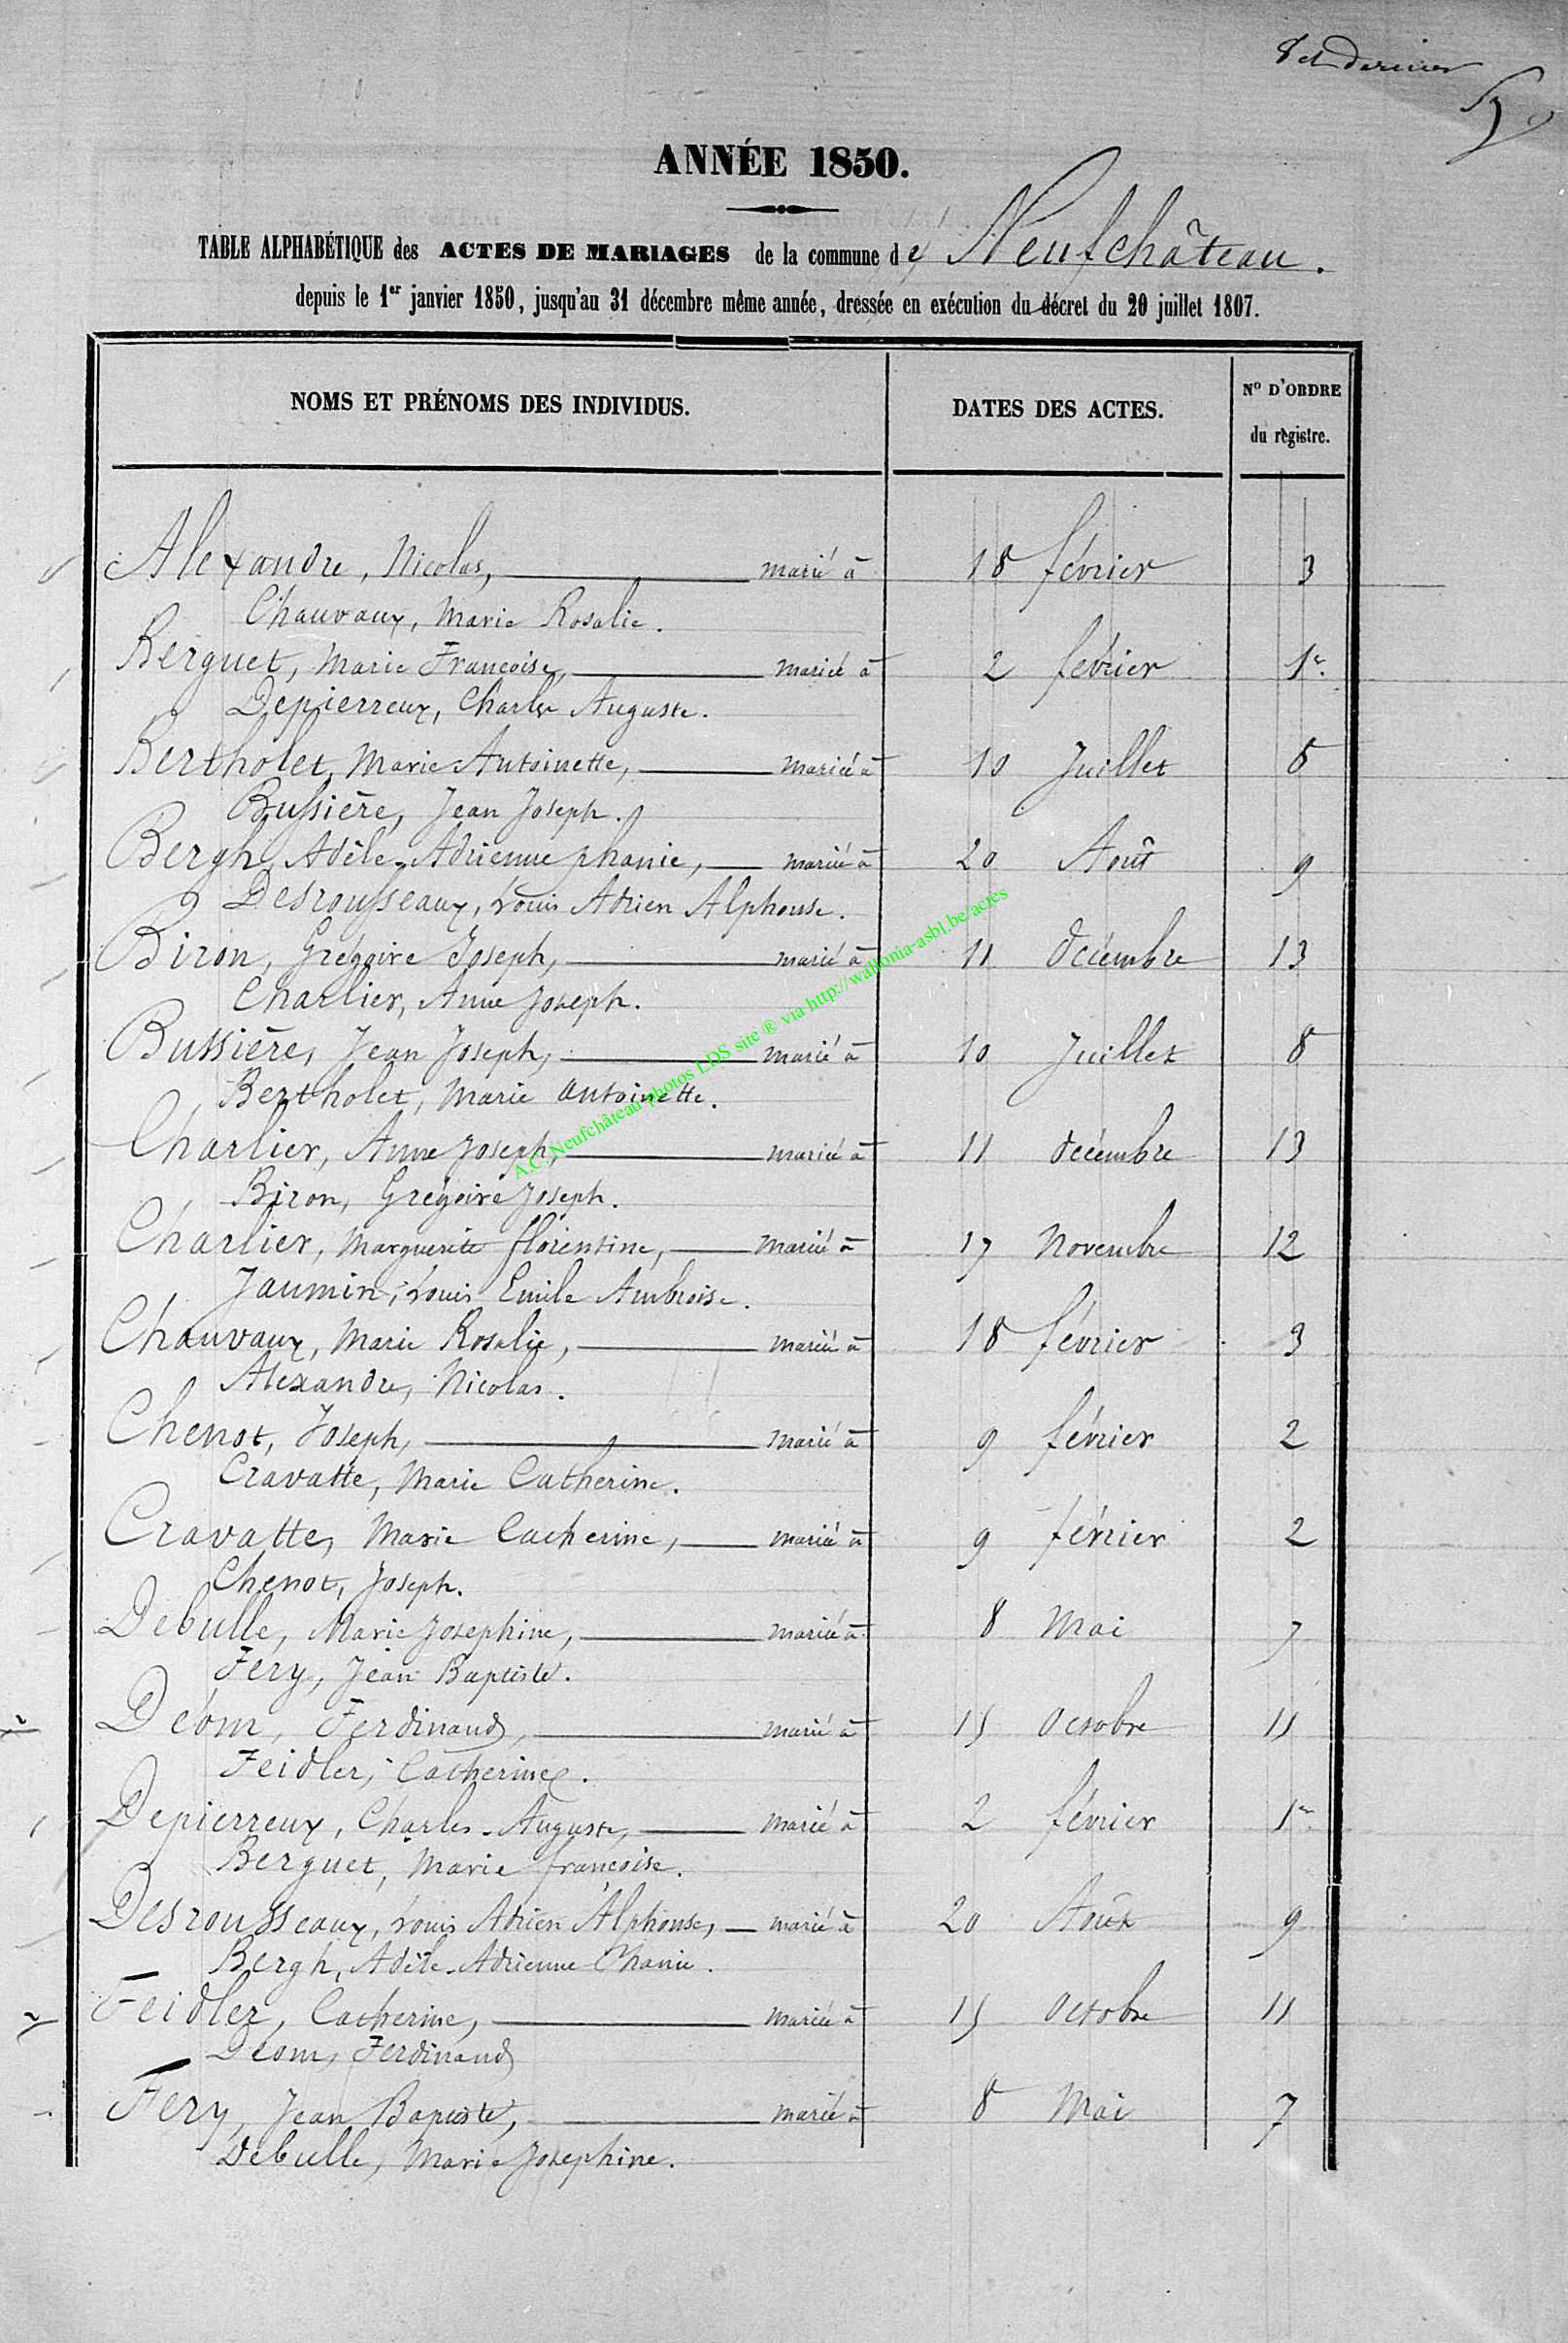 8 et dernier
ANNÉE 1850.
TABLE ALPHABÉTIQUE des ACTES DE MARIAGES de la commune de Neufchâteau.
depuis le 1er janvier 1850, jusqu'au 31 décembre même année, dressée en exécution du décret du 20 juillet 1807.
NOMS ET PRÉNOMS DES INDIVIDUS. DATES DES ACTES. No D'ORDRE du registre.
Alexandre, Nicolas, marié à 18 février 3
Chauvaux, Marie Rosalie.
Berguet, Marie Francoise, mariée à 2 février 1er.
Depierreux, Charles Auguste.
Bertholet, Marie-Antoinette, mariée à 10 Juillet 8
Bussière, Jean Joseph.
Bergh, Adèle-Adrienne phanie, mariée à 20 Août 9
Desrousseaux, Louis Adrien Alphonse.
Biron, Grégoire Joseph, marié à 11 Décembre 13
Charlier, Anne Joseph.
Bussière, Jean Joseph, marié à 10 Juillet 8
Bertholet, Marie Antoinette.
Charlier, Anne Joseph, mariée à 11 décembre 13
Biron, Grégoire Joseph.
Charlier, Marguerite florentine, mariée à 17 Novembre 12
Jaumin, Louis Emile Ambroise.
Chauvaux, Marie Rosalie, mariée à 18 février 3
Alexandre, Nicolas.
Chenot, Joseph, marié à 9 février 2
Cravatte, Marie Catherine.
Cravatte, Marie Catherine, mariée à 9 février 2
Chenot, Joseph.
Debulle, Marie Josephine, mariée à 8 Mai 7
Fery, Jean Baptiste.
Déom, Ferdinand, marié à 15 Octobre 11
Feidler, Catherine.
Depierreux, Charles-Auguste, marié à 2 février 1er
Berguet, Marie francoise.
Desrousseaux, Louis Adrien Alphonse, marié à 20 Août 9
Bergh, Adèle-Adrienne Phanie.
Feidler, Catherine, mariée à 15 Octobre 11
Déom, Ferdinand
Fery, Jean Baptiste, marié à 8 Mai 7
Debulle, Marie Josephine.
A.C. Neufchâteau photos LDS site ® via http://wallonia-asbl.be/actes